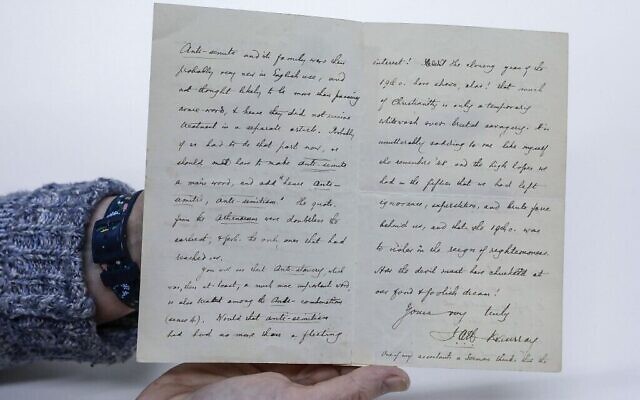 Anti-semite and its family were then
probably very new in English use, and
not thought likely to be more than passing
nonce-words, & hence they did not receive
treatment in a separate article. Probably
if we had to do that part now, we
should have to make Anti-semite
a main word, and add "hence Anti-
semitic, Anti-semitism." The quots.
from the Athenaeum were doubtless the
earliest, & the only ones that had
reached us.
You will see that Anti-slavery, which
was, then at least, a much more important word,
is also treated among the Anti- combinations
Would that anti-semitism
had had no more than a fleeting
interest! The closing years of the
19th c. have shown, alas! that much
of Christianity is only a temporary
whitewash over brutal savagery. It is
unutterably saddening to one like myself
who remembers '48 and the high hopes we
had in the fifties that we had left
ignorance, superstition, and brute force
behind us, and that the 19th c. was
to usher in the reign of righteousness.
How the devil must have chuckled at
our fond & foolish dreams!
Yours very truly
J.A.H. Murray
One of my assistants a German thinks that the